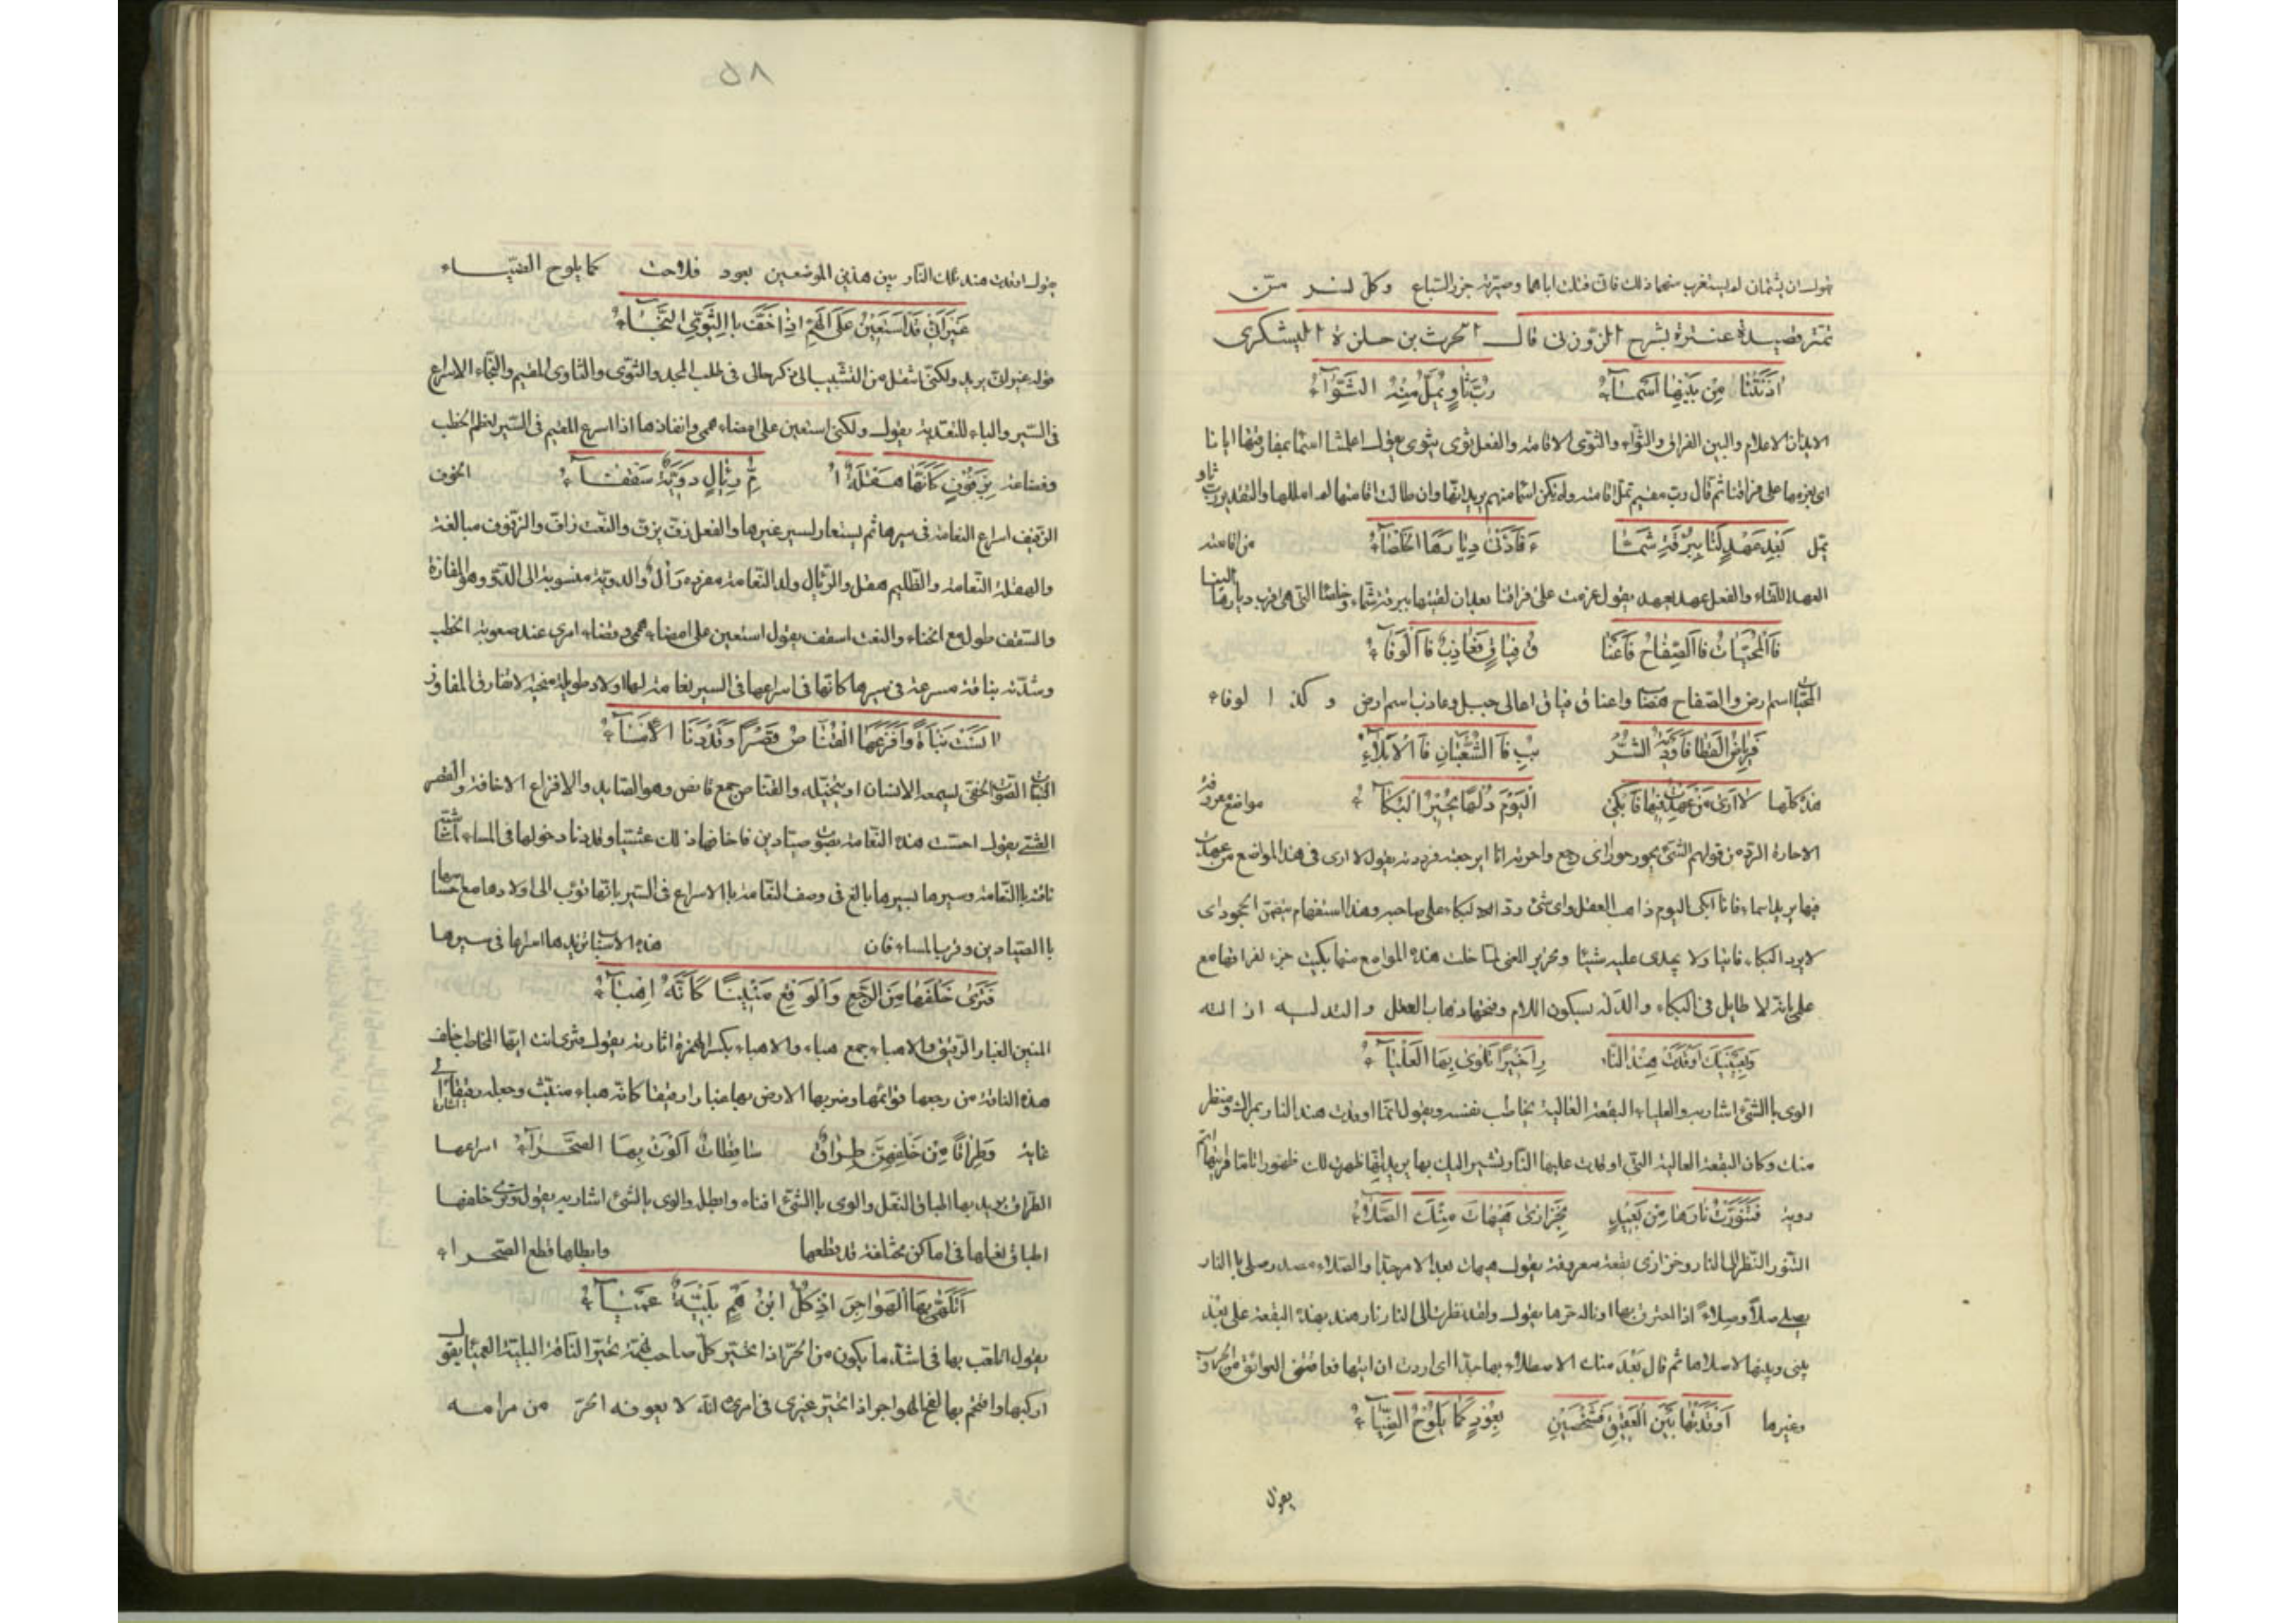 يقول ان يشتمان لم يستغرب منهما ذلك فانى قتلت اباهما وصيرته جزر السباع وكل نسر مسن
تمت قصيدة عنترة بشرح الزوزنى قال الحرث بن حلزة اليشكرى
اٰذَنَتْنَا مِنْ بَيْنِهَا اَسْمَآءُ رُبَّ ثَاوٍ يُمَلُّ مِنْهُ الثَّوَآءُ
الايذان الاعلام والبين الفراق والثواء والثوى الاقامة والفعل ثوى يثوى يقول اعلمتنا اسماء بمفارقتها ايانا
اى بعزمها على فراقنا ثم قال رب مقيم تمل اقامته ولم تكن اسماء منهم يريد انها وان طالت اقامتها لم املها والتقدير رب ثاو
يمل بَعْدَ عَهْدٍ لَنَا بِبُرْقَةِ شَمَّا ءَ فَاَدْنٰى دِيَارِهَا الْخَلْصَآءُ من اقامته
العهد اللقاء والفعل عهد يعهد يقول عزمت على فراقنا بعد ان لقيتها ببرقة شماء وخلصاء التى هى اقرب ديارها الينا
فَاالْمُحَيَّاتُ فَاالصِّفَاحُ فَاَعْنَا قُ فِتَاقٍ فَعَاذِبٌ فَاالْوَفَآءُ
المحياة اسم ارض والصفاح هضبات واعناق فتاق اعالى جبل وعاذب اسم ارض وكذا لوفاء
فَرِيَاضُ الْقَطَا فَاَوْدِيَةُ الشُّرْ بُبِ فَاالشُّعْبَتَانِ فَاالْاَبْلَآءُ
هذه كلها لَا اَرٰى مَنْ عَهِدْتُ فِيْهَا فَاَبْكِى الْيَوْمَ دَلْهًا وَمَا يُحِيْرُ الْبُكَآءُ مواضع معروفة
الاحارة الرد من قولهم الشئ يحور حورا اى رجع واحرته انا ارجعته فرددته يقول لا ارى فى هذه المواضع من عهدت
فيها يريد اسماء فانا ابكى اليوم ذاهب العقل واى شئ رد البكاء على صاحبه وهذا استفهام يتضمن الجحود اى
لا يرد البكاء فائتا ولا يجدى عليه شيئا وتحرير المعنى لما خلت هذه المواضع منها بكيت جزعا لفراقها مع
علمى بانه لا طايل فى البكاء والدله بسكون اللام وفتحها ذهاب العقل والتدليه ازالته
وَبِعَيْنَيْكَ اَوْقَدَتْ هِنْدٌ النَّا رَ اَخِيْرًا تُلْوِىْ بِهَا الْعَلْيَآءُ
الوى باالشئ اشار به والعلياء البقعة العالية يخاطب نفسه ويقول انما اوقدت هند النار بمراك ومنظر
منك وكان البقعة العالية التى اوقدت عليها النار تشير اليك بها يريد انها ظهرت لك ظهورا تاما فرايتها اتم
روية فَتَنَوَّرْتُ نَارَهَا مِنْ بَعِيْدٍ بِخَزَازٰى هَيْهَاتَ مِنْكَ الصَّلَآءُ
التنور النظر الى النار وخزازى بقعة معروفة يقول هيهات بعد الامر جدا والصلاء مصدر صلى باالنار
يصلى صلا وصلاء اذا احترق بها او ناله حرها يقول ولقد نظرت الى النار نار هند بهذه البقعة على بعد
بينى وبينها لاصلاها ثم قال بعد منك الاصطلاء بها جدا اى اردت ان اتيها فعاقتنى العوائق من الحروب
وغيرها اَوْقَدَتْهَا بَيْنَ الْعَقِيْقِ فَشَخْصَيْنِ بِعُوْدٍ كَمَا يَلُوْحُ الضِّيَآءُ
يقول
٥٨
يقول اوقدت هند تلك النار بين هذين الموضعين بعود فلاحت كما يلوح الضياء
غَيْرَ اَنِّىْ قَدْ اَسْتَعِيْنُ عَلَى الْهَمِّ اِذَا خَفَّ بِاالثَّوِىِّ النَّجَآءُ
قوله غير انى يريد ولكنى انتقل من التشبيب الى ذكر حالى فى طلب المجد والثوى والثاوى المقيم والنجاء الاسراع
فى السير والباء للتعدية يقول ولكنى استعين على امضاء همى وانفاذها اذا اسرع المقيم فى السير لعظم الخطب
وفظاعته بِزَفُوْفٍ كَاَنَّهَا هَقْلَةٌ اُ مُّ رِئَالٍ دَوِّيَّةٌ سَقْفَآءُ الخوف
الزفيف اسراع النعامة فى سيرها ثم يستعار لسير غيرها والفعل زف يزف والنعت زاف والزفوف مبالغة
والهقلة النعامة والظليم هقل والرئال ولد النعامة مفرده رأل والدوية منسوبة الى الدو وهو المفازة
والسقف طول مع انحناء والنعت اسقف يقول استعين على امضاء همى وقضاء امرى عند صعوبة الخطب
وشدته بناقة مسرعة فى سيرها كانها فى اسراعها فى السير نعامة لها اولاد طويلة منحنية لا تفارق المفاوز
اٰنَسَتْ نَبْاَةً وَاَفْزَعَهَا الْقُنَّاصُ قَصْرًا وَقَدْ دَنَا الْاِمْسَآءُ
النباة الصوت الخفى يسمعه الانسان او يتخيله والقناص جمع قانص وهو الصايد والافزاع الاخافة والقصر
العشى يقول احست هذه النعامة بصوت صيادين فاخافها ذلك عشيا وقد دنا دخولها فى المساء شبه
ناقته باالنعامة وسيرها بسيرها بالغ فى وصف النعامة باالاسراع فى السير بانها تؤب الى اولادها مع احساسها
باالصيادين وقرب المساء فان هذه الاسباب تزيدها اسراعا فى سيرها
فَتَرٰى خَلْفَهَا مِنَ الرَّجْعِ وَالْوَقْعِ مَنِيْنًا كَاَنَّهُ اِهْبَآءُ
المنين الغبار الرقيق والاهباء جمع هباء والاهباء بكسر الهمزة اثارته يقول فترى انت ايها المخاطب خلف
هذه الناقة من رجعها قوائمها وضربها الارض بها غبارا رقيقا كانه هباء منبث وجعله رقيقا
غاية وَطِرَاقًا مِنْ خَلْفِهِنَّ طِرَاقٌ سَاقِطَاتٌ اَلْوَتْ بِهَا الصَّحْرَآءُ اسراعها
الطراق يريد بها اطباق النعل والوى باالشئ افناه وابطله والوى بالشئ اشار به يقول وترى خلفها
اطباق نعلها فى اماكن مختلفة قد قطعها وابطلها قطع الصحراء
اَتَلَهّٰى بِهَا الْهَوَاجِرَ اِذْ كُلُّ ابْنِ هَمٍّ بَلِيَّةٌ عَمْيَآءُ
يقول اتلعب بها فى اشد ما يكون من الحر اذا تحير كل صاحب همة تحير الناقة البلية العمياء يقول
اركبها واقتحم بها لفح الهواجر اذا تحير غيرى فى امره انه لا يعوقه الحر من مرامه